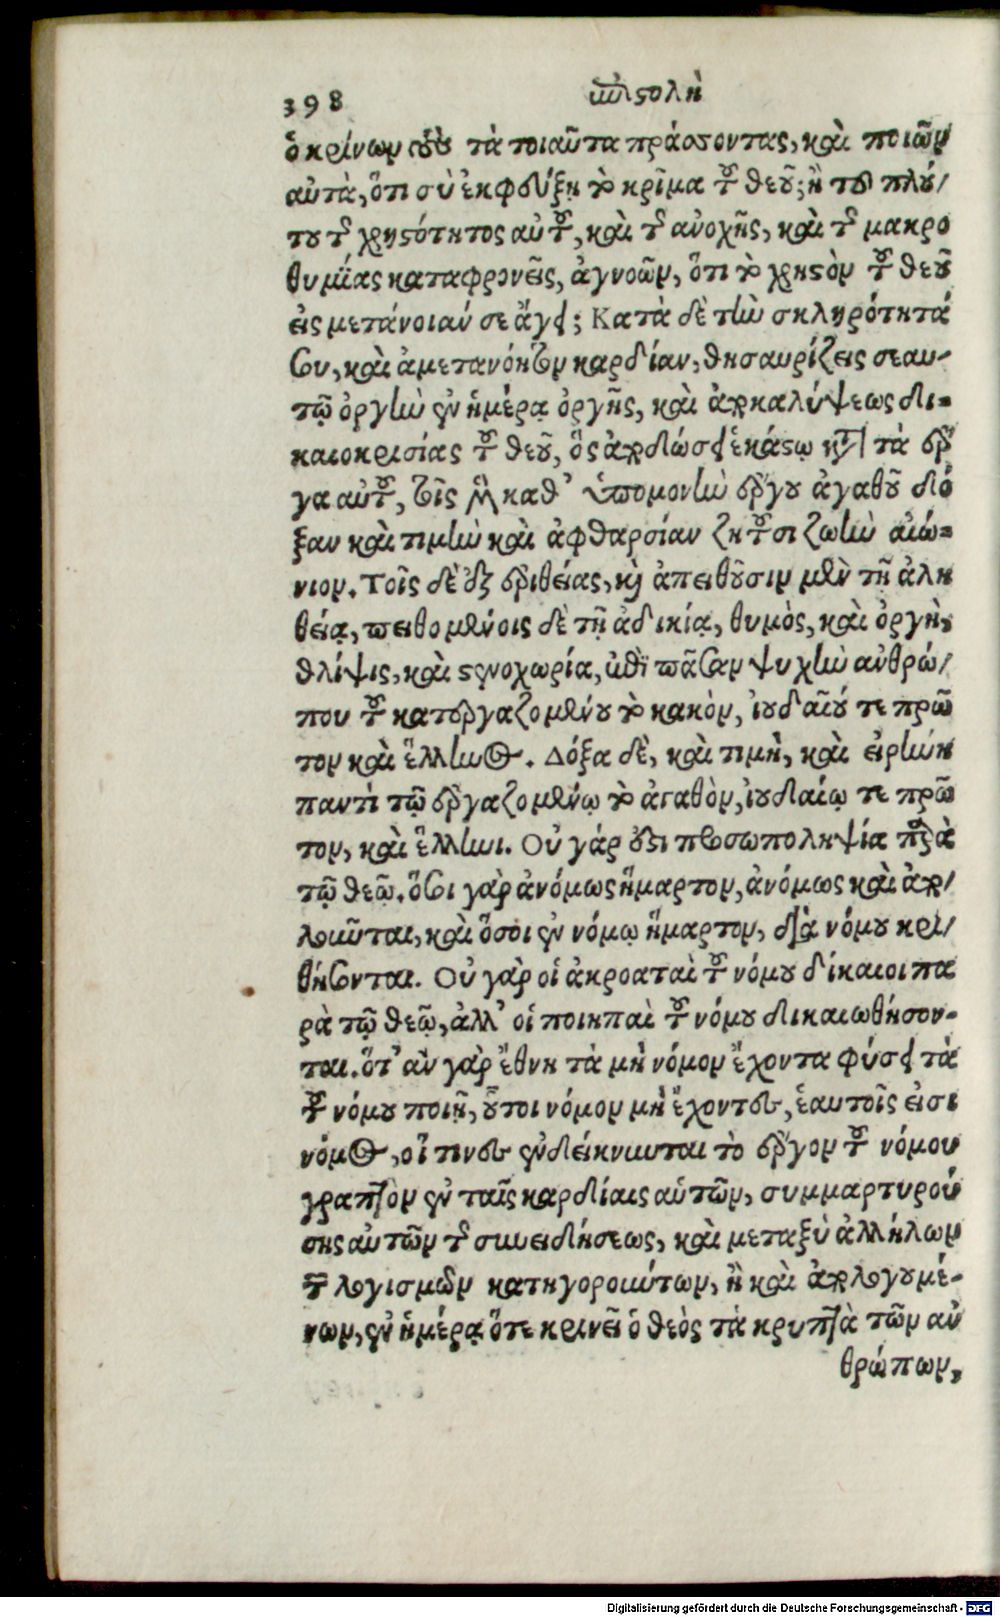 398 ἐπιστολὴ
ὁ κρίνων τοὺς τὰ τοιαῦτα πράσσοντας, καὶ ποιῶν
αὐτὰ, ὅτι σὺ ἐκφεύξῃ τὸ κρῖμα τοῦ θεοῦ; ἢ τοῦ πλού/
του τῆς χρηστότητος αὐτοῦ, καὶ τῆς ἀνοχῆς, καὶ τῆς μακρο
θυμίας καταφρονεῖς, ἀγνοῶν, ὅτι τὸ χρηστὸν τοῦ θεοῦ
εἰς μετάνοιάν σε ἄγει; Κατὰ δὲ τὴν σκληρότητά
σου, καὶ ἀμετανόητον καρδίαν, θησαυρίζεις σεαυ-
τῷ ὀργὴν ἐν ἡμέρᾳ ὀργῆς, καὶ ἀποκαλύψεως δι-
καιοκρισίας τοῦ θεοῦ, ὃς ἀποδώσει ἑκάστῳ κατὰ τὰ ἔρ
γα αὐτοῦ, τοῖς μὲν καθ’ ὑπομονὴν ἔργου ἀγαθοῦ δό
ξαν καὶ τιμὴν καὶ ἀφθαρσίαν ζητοῦσι ζωὴν αἰώ-
νιον. Τοῖς δὲ ἐξ ἐριθείας, καὶ ἀπειθοῦσιν μὲν τῇ ἀλη
θείᾳ, πειθομένοις δὲ τῇ ἀδικίᾳ, θυμὸς, καὶ ὀργὴ,
θλίψις, καὶ στενοχωρία, ἐπὶ πᾶσαν ψυχὴν ἀνθρώ/
που τοῦ κατεργαζομένου τὸ κακὸν, ἰουδαίου τε πρῶ
τον καὶ ἕλληνος. Δόξα δὲ, καὶ τιμὴ, καὶ εἰρήνη
παντὶ τῷ ἐργαζομένῳ τὸ ἀγαθὸν, ἰουδαίῳ τε πρῶ
τον, καὶ ἕλληνι. Οὐ γάρ ἐστι προσωποληψία παρὰ
τῷ θεῷ. ὅσοι γὰρ ἀνόμως ἥμαρτον, ἀνόμως καὶ ἀπο/
λοῦνται, καὶ ὅσοι ἐν νόμῳ ἥμαρτον, διὰ νόμου κρι/
θήσονται. Οὐ γὰρ οἱ ἀκροαταὶ τοῦ νόμου δίκαιοι πα
ρὰ τῷ θεῷ, ἀλλ’ οἱ ποιηταὶ τοῦ νόμου δικαιωθήσον-
ται. ὅτ’ ἂν γὰρ ἔθνη τὰ μὴ νόμον ἔχοντα φύσει τὰ
τοῦ νόμου ποιῇ, οὗτοι νόμον μὴ ἔχοντες, ἑαυτοῖς εἰσι
νόμος, οἵ τινες ἐνδείκνυνται τὸ ἔργον τοῦ νόμου
γραπτὸν ἐν ταῖς καρδίαις αὑτῶν, συμμαρτυρού
σης αὐτῶν τῆς συνειδήσεως, καὶ μεταξὺ ἀλλήλων
τῶν λογισμῶν κατηγορούντων, ἢ καὶ ἀπολογουμέ-
νων, ἐν ἡμέρᾳ ὅτε κρινεῖ ὁ θεὸς τὰ κρυπτὰ τῶν ἀν
θρώπων,
Digitalisierung gefördert durch die Deutsche Forschungsgemeinschaft - DFG